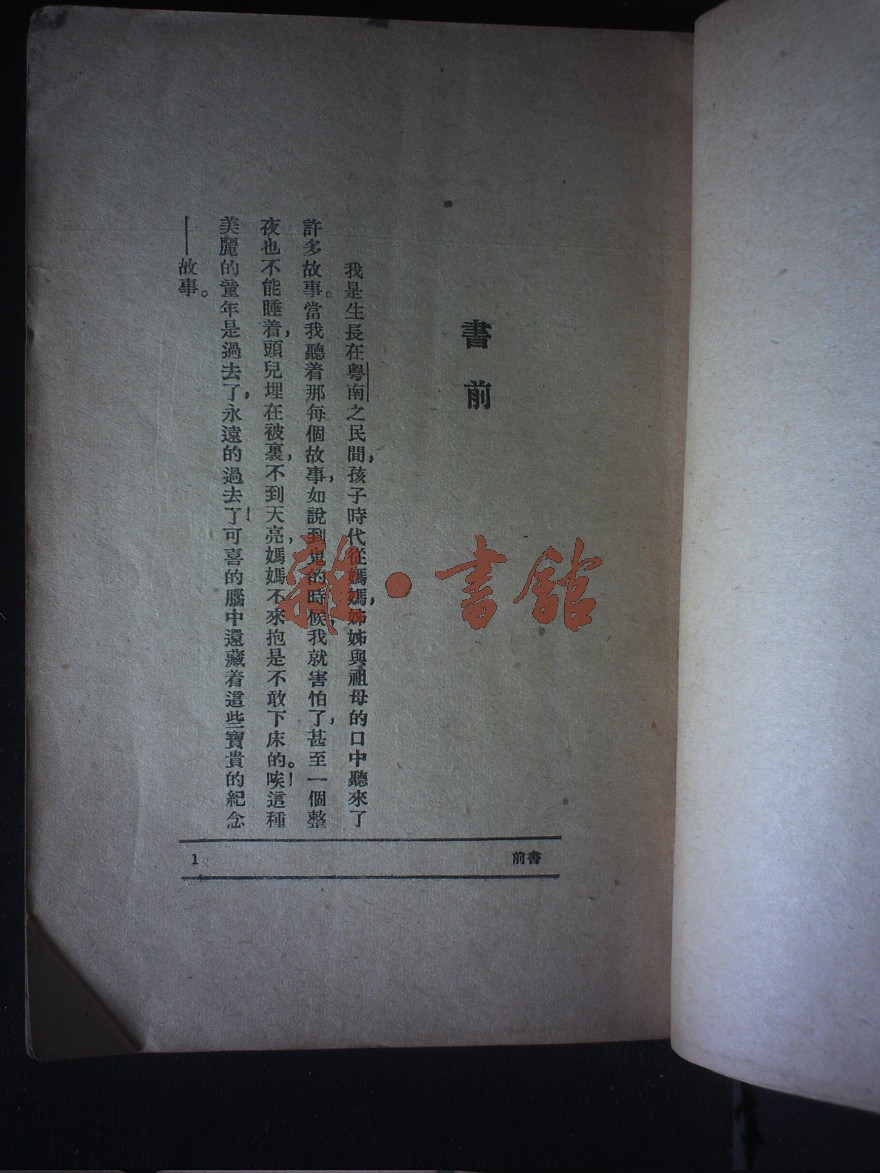 書前
我是生長在粤南之民間,孩子時代從媽媽,姊姊與祖母的口中聽來了
許多故事。當我聽着那每個故事,如說到鬼的時候,我就害怕了,甚至一個整
夜也不能睡着,頭兒埋在被裏,不到天亮,媽媽不來抱是不敢下床的。唉!這種
美麗的童年是過去了,永遠的過去了!可喜的腦中還藏着這些寶貴的紀念
——故事。
前書
1
雜·書館